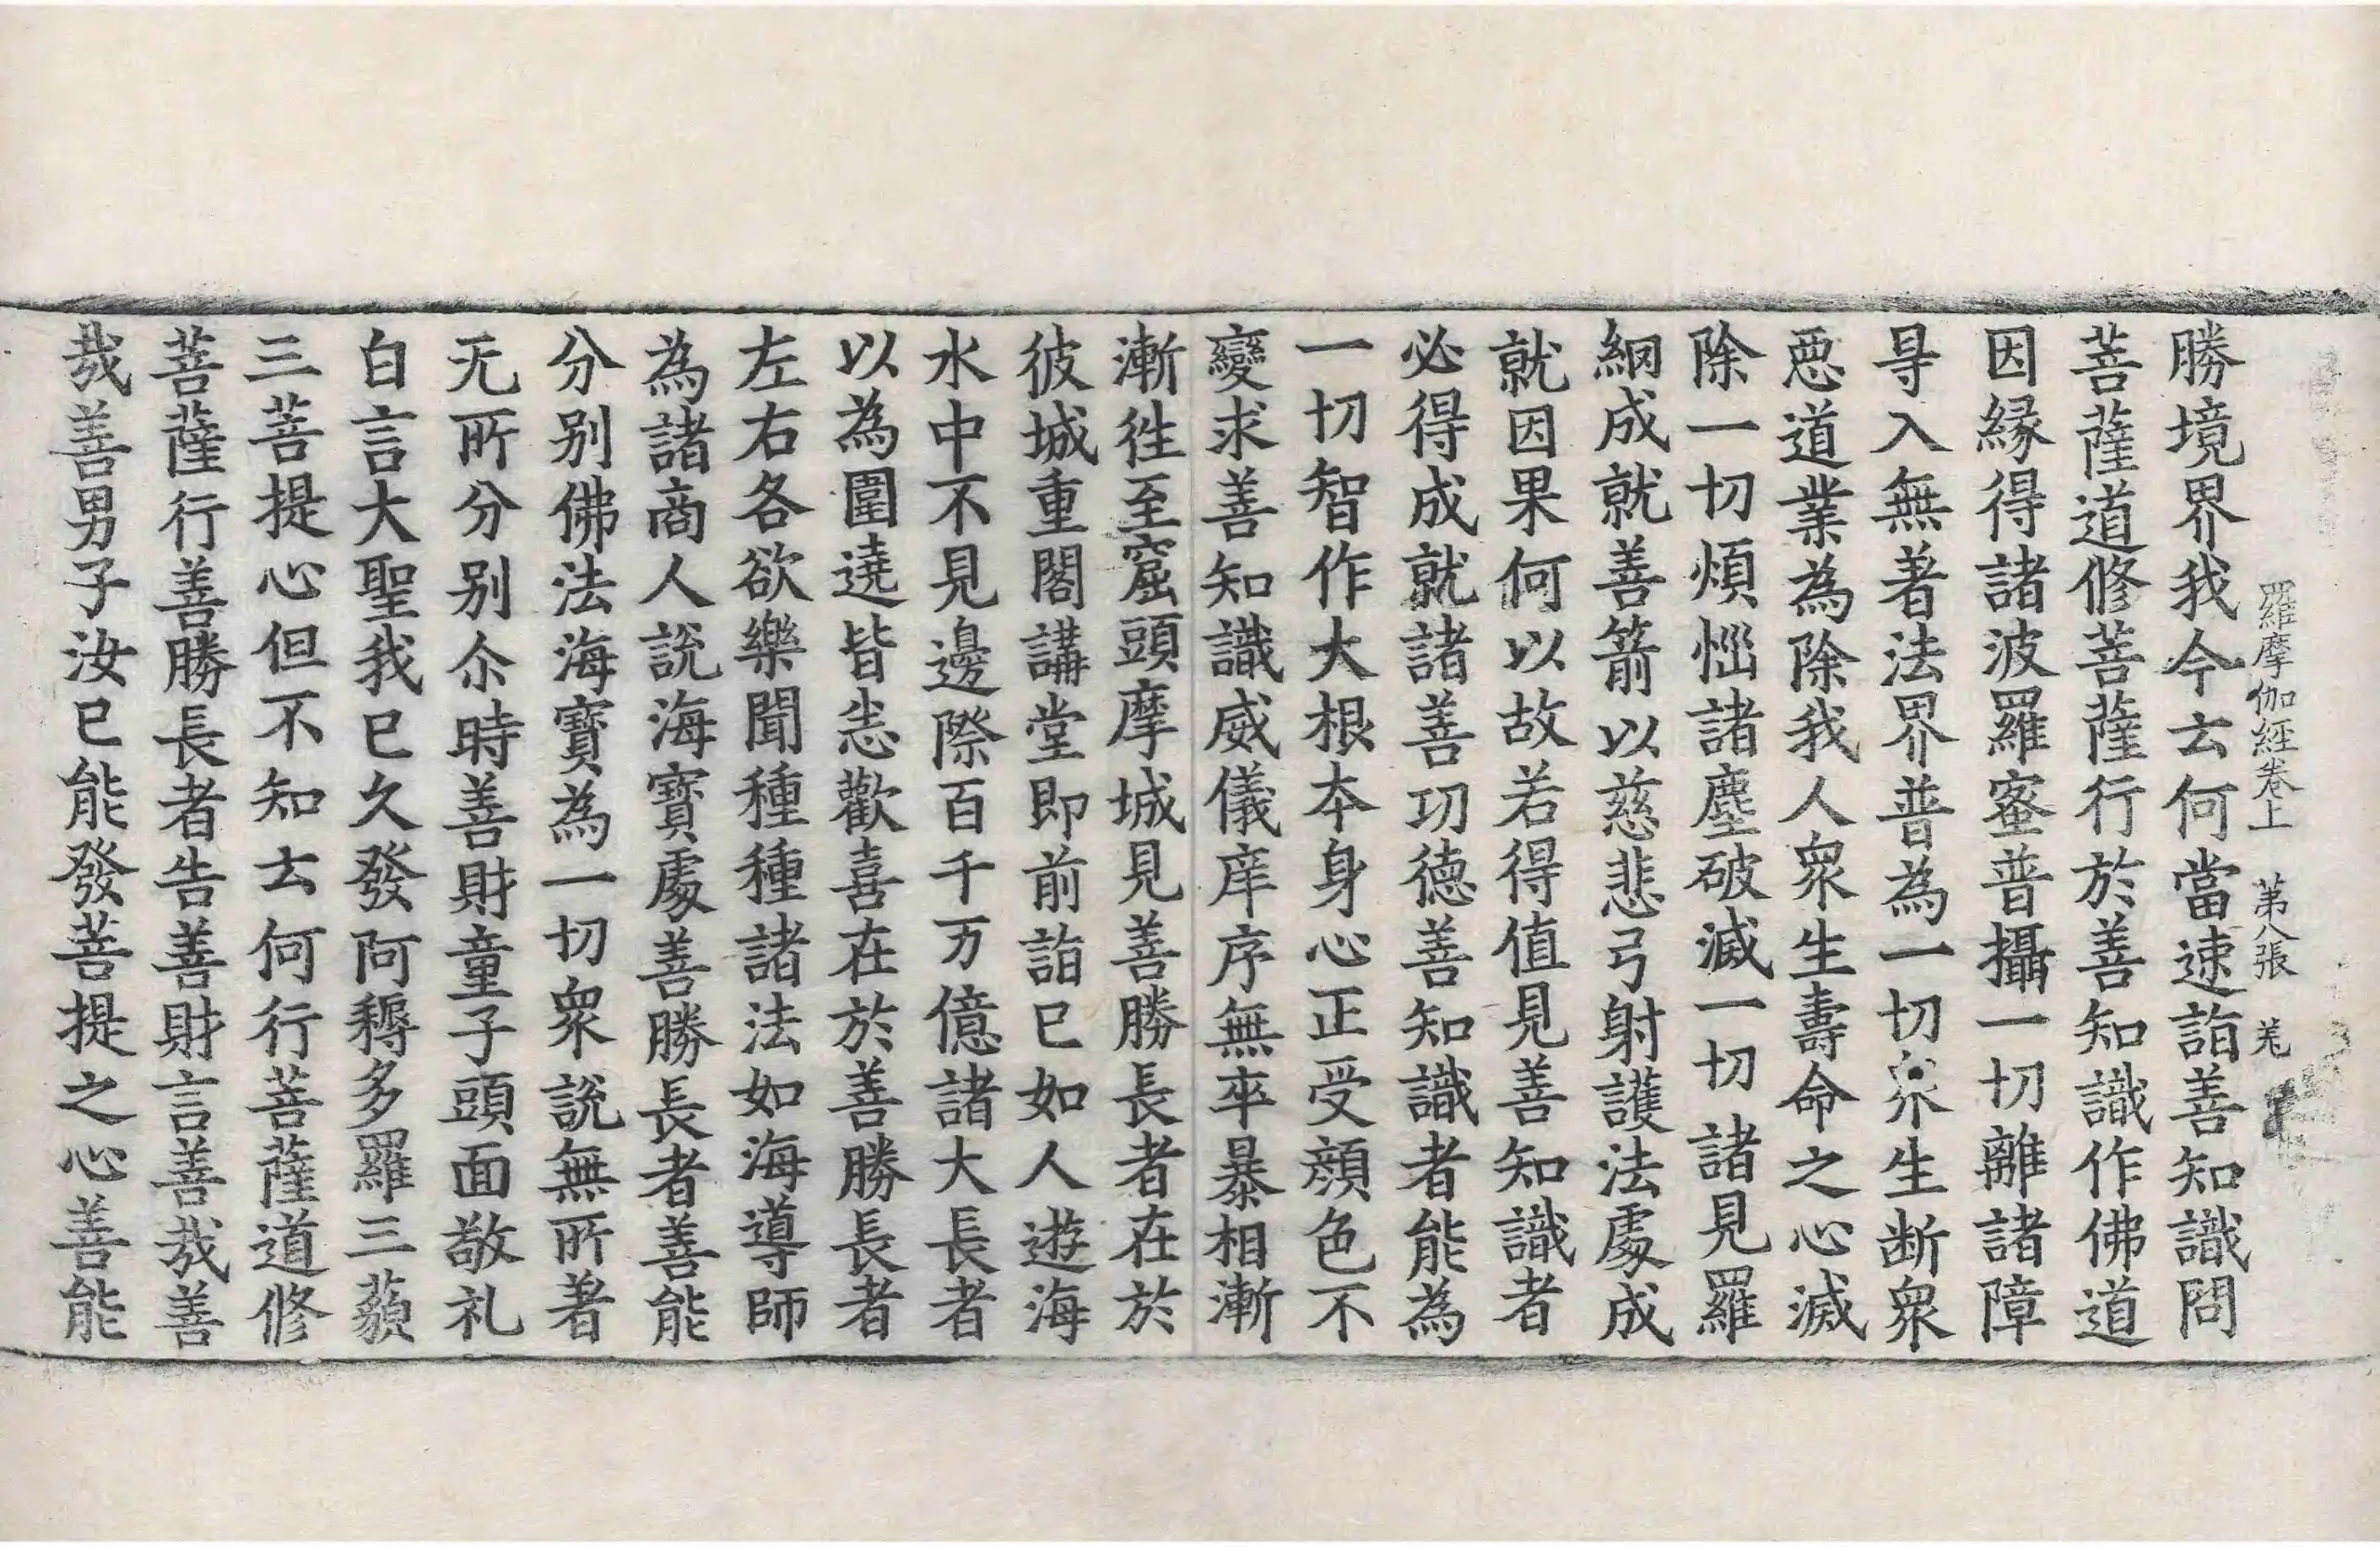 羅摩伽經卷上 第八張 羌
勝境界我今云何當速詣善知識問
菩薩道修菩薩行於善知識作佛道
因緣得諸波羅蜜普攝一切離諸障
㝵入無著法界普為一切众生断眾
惡道業為除我人眾生壽命之心滅
除一切煩惱諸塵破滅一切諸見羅
網成就善箭以慈悲弓射護法處成
就因果何以故若得值見善知識者
必得成就諸善功德善知識者能為
一切智作大根本身心正受顏色不
變求善知識威儀庠序無卒暴相漸
漸徃至窟頭摩城見善勝長者在於
彼城重閣講堂即前詣已如人遊海
水中不見邊際百千万億諸大長者
以為圍遶皆悉歡喜在於善勝長者
左右各欲樂聞種種諸法如海導師
為諸商人說海寶處善勝長者善能
分別佛法海寶為一切眾說無所著
无所分别尒時善財童子頭面敬礼
白言大聖我已久發阿耨多羅三藐
三菩提心但不知云何行菩薩道修
菩薩行善勝長者告善財言善哉善
哉善男子汝已能發菩提之心善能